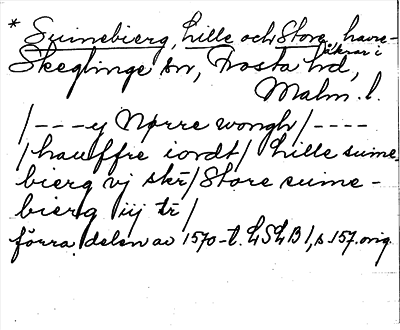 * Suinebierg, Lille och Stora, havre-
åkrar i
Skeglinge sn, Frosta hd,
Malm. l.
/---y Nørre wongh/----
/hauffre iordt/ Lille suine-
bierg vj skr/ Store suine-
bierg iij tr/
förra delen av 1570-t. LSLB 1, s 157. orig.